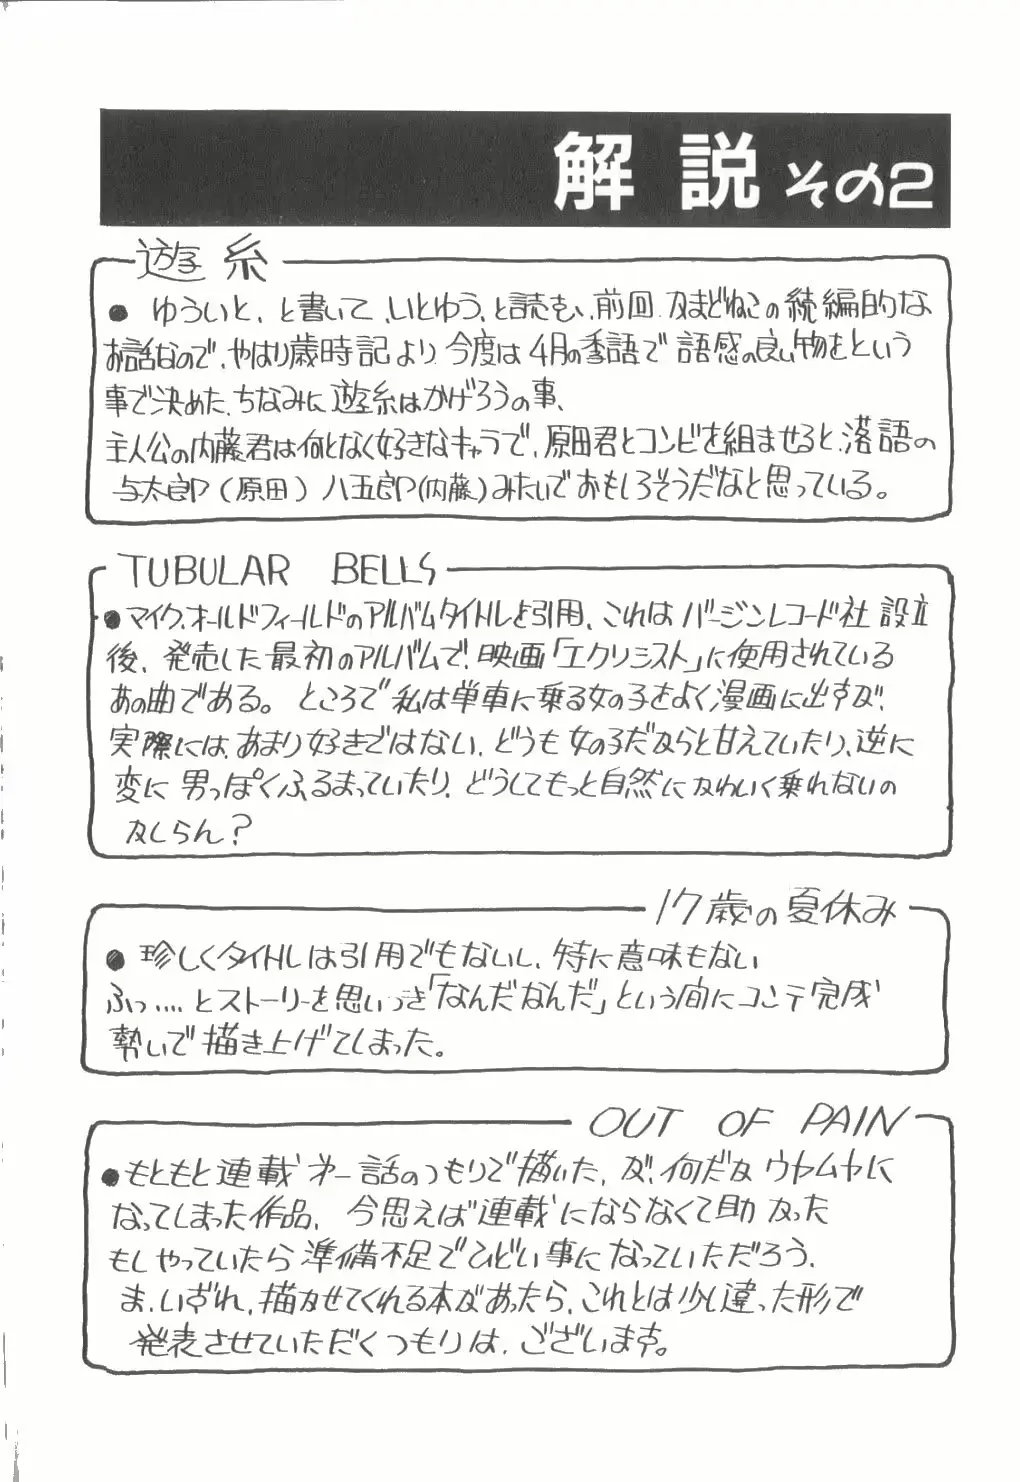 解説 その2
遊糸
● ゆういと、と書いて、いとゆう、と読む、前回、かまどねこの続編的な
お話なので、やはり歳時記より今度は4月の季語で語感の良い物をという
事で決めた、ちなみに遊糸はかげろうの事、
主人公の内藤君は何となく好きなキャラで、原田君とコンビを組ませると、落語の
与太郎(原田)八五郎(内藤)みたいでおもしろそうだなと思っている。
TUBULAR BELLS
●マイク、オールドフィールドのアルバムタイトルを引用、これはバージンレコード社設立
後、発売した最初のアルバムで、映画「エクソシスト」に使用されている
あの曲である。ところで私は単車に乗る女の子をよく漫画に出すが、
実際には、あまり好きではない、どうも女の子だからと甘えていたり、逆に
変に男っぽくふるまっていたり、どうしてもっと自然にかわいく乗れないの
かしらん?
17歳の夏休み
● 珍しくタイトルは引用でもないし、特に意味もない
ふっ....とストーリーを思いつき「なんだなんだ」という間にコンテ完成
勢いで描き上げてしまった。
OUT OF PAIN
●もともと連載才一話のつもりで描いた、が、何だかウヤムヤに
なってしまった作品、今思えば連載にならなくて助かった
もしやっていたら準備不足でひどい事になっていただろう、
ま、いずれ、描かせてくれる本があったら、これとは少し違った形で
発表させていただくつもりは、ございます。